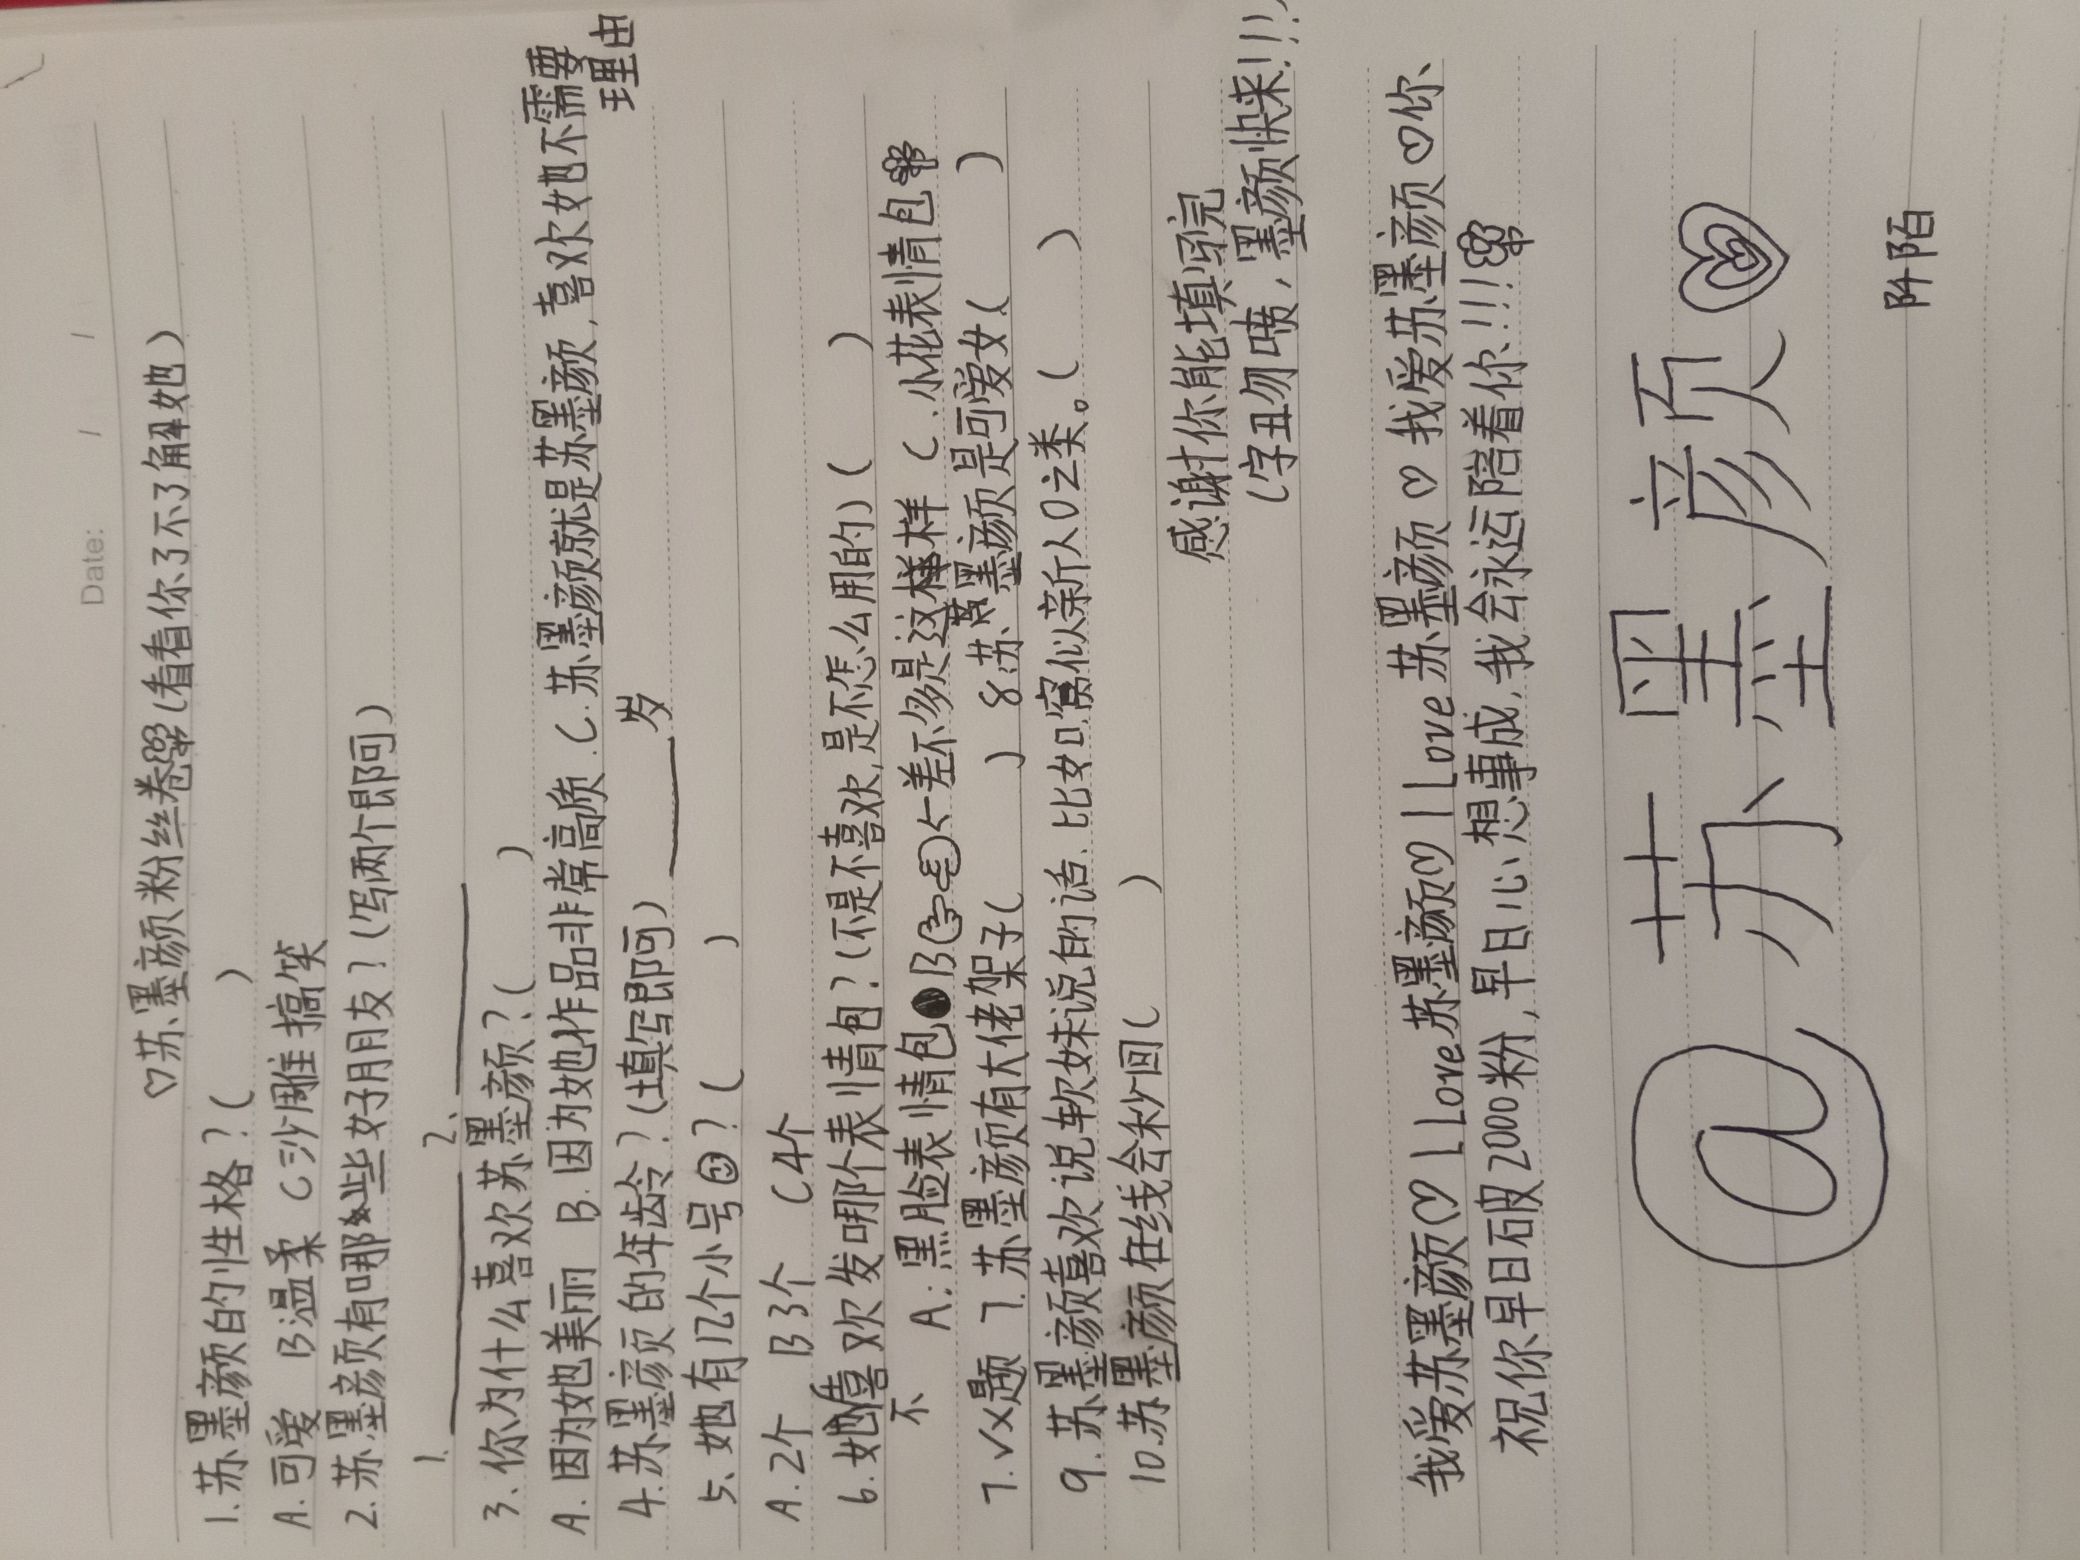 Date: / /
♡苏墨颜粉丝卷(看看你了不了解她)
1.苏墨颜的性格?( )
A.可爱 B温柔 C沙雕搞笑
2.苏墨颜有哪些好朋友?(写两个即可)
1. 2.
3.你为什么喜欢苏墨颜?( )
A.因为她美丽 B.因为她作品非常高质.C.苏墨颜就是苏墨颜,喜欢她不需要
理由
4.苏墨颜的年龄?(填写即可) 岁
5、她有几个小号?( )
A.2个 B3个 C4个
6.她不喜欢发哪个表情包?(不是不喜欢,是不怎么用的)( )
A:黑脸表情包 B ←差不多是这样 C.小花表情包
7.√×题 7.苏墨颜有大佬架子( ) 8苏墨颜是可爱女( )
9.苏墨颜喜欢说软妹说的话.比如窝似新人0之类。( )
10.苏墨颜在线会秒回( )
感谢你能填写完
(字丑勿喷,墨颜快来!!!)
我爱苏墨颜♡ I Love苏墨颜♡ I Love苏墨颜♡我爱苏墨颜♡你
祝你早日破2000粉,早日心想事成,我会永远陪着你!!!
@苏墨颜
阡陌